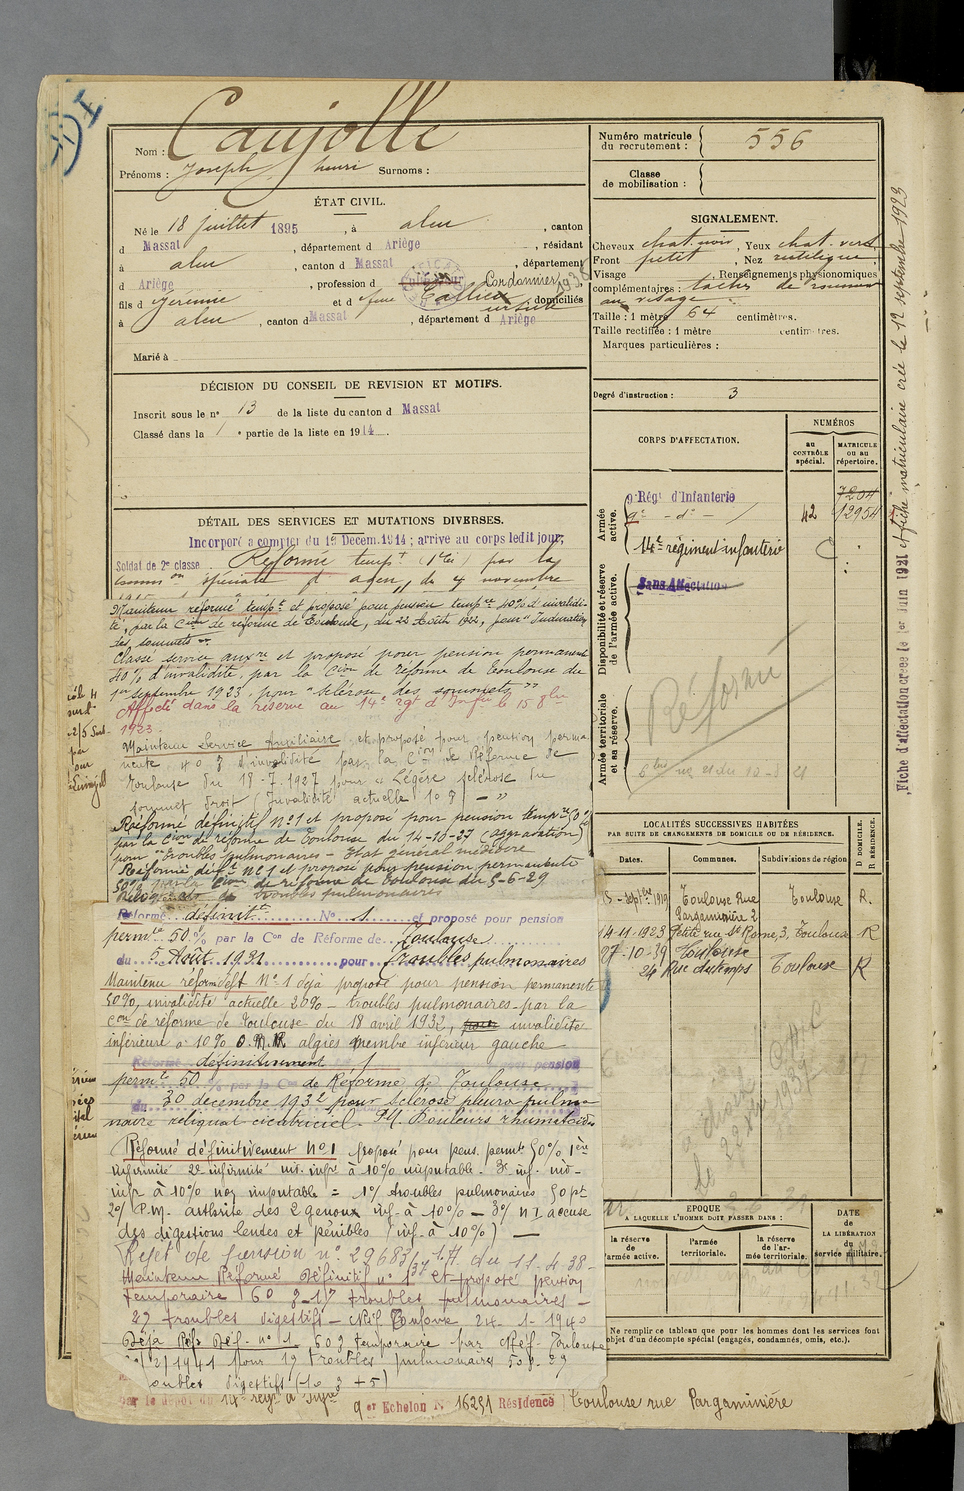 Nom : Caujolle
Prénoms : Joseph, henri Surnoms :
Numéro matricule du recrutement : 556
Classe de mobilisation :
ÉTAT CIVIL.
Né le 18 juillet 1895, à aleu, canton
d Massat, département d Ariège, résidant
à aleu, canton d Massat, département
d Ariège, profession d Cultivateur Cordonnier
fils d Jérémie et d feue Caillieu ursule domiciliés
à aleu, canton d Massat, département d Ariège
Marié à
DÉCISION DU CONSEIL DE REVISION ET MOTIFS.
Inscrit sous le n° 13 de la liste du canton d Massat
Classé dans la 1 e partie de la liste en 1914.
SIGNALEMENT.
Cheveux chat. noir, Yeux chat. vert
Front petit, Nez rectiligne
Visage , Renseignements physionomiques
complémentaires : taches de rousseur
au visage
Taille : 1 mètre 64 centimètres.
Taille rectifiée : 1 mètre centimètres.
Marques particulières :
Degré d'instruction : 3
CORPS D'AFFECTATION.
NUMÉROS
au CONTRÔLE spécial.
MATRICULE OU AU RÉPERTOIRE.
Armée active.
9e Régt d'Infanterie 7204
9e - d° - 42 12954
14e régiment infanterie
Disponibilité et réserve de l'armée active.
Sans Affectation
Armée territoriale et sa réserve.
Réformé
DÉTAIL DES SERVICES ET MUTATIONS DIVERSES.
Incorporé a compter du 19 Décem. 1914 ; arrivé au corps ledit jour,
Soldat de 2e classe Réformé tempt 1 par la
Comm on spéciale d'agen, du 4 novembre
Maintenu réformé tempre et proposé pour pension tempre 40% d'invalidi-
té, par la Cion de réforme de Toulouse, du 22 Août 1922, pour "Induration
des sommets"
Classé service auxre et proposé pour pension permanente
40% d'invalidité, par la Cion de réforme de Toulouse du
1er septembre 1923, pour "sclérose des sommets"
Affecté dans la réserve au 14e rgt d'Infie le 15 8bre
1923
Maintenu Service Auxiliaire et proposé pour pension perma
nente 40 % d'invalidité par la Cion de Réforme de
Toulouse du 18-7-1927 pour "Légère sclérose du
sommet droit (Invalidité actuelle 10%) - "
Réformé définitif n°1 et proposé pour pension tempre 50%
par la Cion de réforme de Toulouse du 14-10-27 (aggravation)
pour "Troubles pulmonaires - Etat général médiocre
Réformé déf n°1 et proposé pour pension permanente
50% par la Cion de réforme de Toulouse du 5-6-29
troubles pulmonaires
Réformé définit N° 1 et proposé pour pension
permte 50% par la Con de Réforme de Toulouse
du 5 Août 1931 pour troubles pulmonaires
Maintenu réform déft N° 1 déjà proposé pour pension permanente
50%, invalidité actuelle 20% - troubles pulmonaires - par la
Con de réforme de Toulouse du 18 avril 1932, pour invalidité
inférieure à 10% algies membre inférieur gauche
Réformé définitivement 1 pension
permte 50 % par la Con de Réforme de Toulouse
du 30 décembre 1932 pour sclérose pleuro pulmo-
naire reliquat cicatriciel. P.M. Douleurs rhumatoïdes
Réformé définitivement N°1 proposé pour pens. permte 50% 1ère
infirmité 2e infirmité inv. infre à 10% imputable. 3e inf. inv-
infr à 10% non imputable = 1°/ troubles pulmonaires 50 pt
2°/ P.M. arthrite des 2 genoux inf. à 10% - 3°/ N.I. accuse
des digestions lentes et pénibles (inf. à 10%) —
Rejet de pension n° 29683 du 11-4-38-
Maintenu Réformé Définitif n° 1 et proposé pension
temporaire 60 % - 1°/ troubles pulmonaires -
2°/ troubles digestifs - Réf Toulouse 24-1-1940
Déjà Réfé Déf. n° 1 60% temporaire par Réf. Toulouse
1941 pour 1° troubles pulmonaires 50%. 2°
troubles digestifs (10% + 5)
par le dépôt du 14e régt d'Infie 9er Echelon N° 16251 Résidence Toulouse rue Pargaminière
LOCALITÉS SUCCESSIVES HABITÉES
PAR SUITE DE CHANGEMENTS DE DOMICILE OU DE RÉSIDENCE.
Dates. Communes. Subdivisions de région D DOMICILE. R RÉSIDENCE.
15 - Septbre 1919 Toulouse Rue Pargaminière 2 Toulouse R.
14-11-1923 Petite rue St Rome, 3, Toulouse R
27-10-39 Toulouse
24 Rue du temps Toulouse R
ÉPOQUE
A LAQUELLE L'HOMME DOIT PASSER DANS :
la réserve de l'armée active.
l'armée territoriale.
la réserve de l'armée territoriale.
DATE de LA LIBÉRATION du service militaire.
Ne remplir ce tableau que pour les hommes dont les services font
objet d'un décompte spécial (engagés, condamnés, omis, etc.).
Fiche d'affectation créée le 1er Juin 1921 et fiche matriculaire créée le 12 septembre 1923